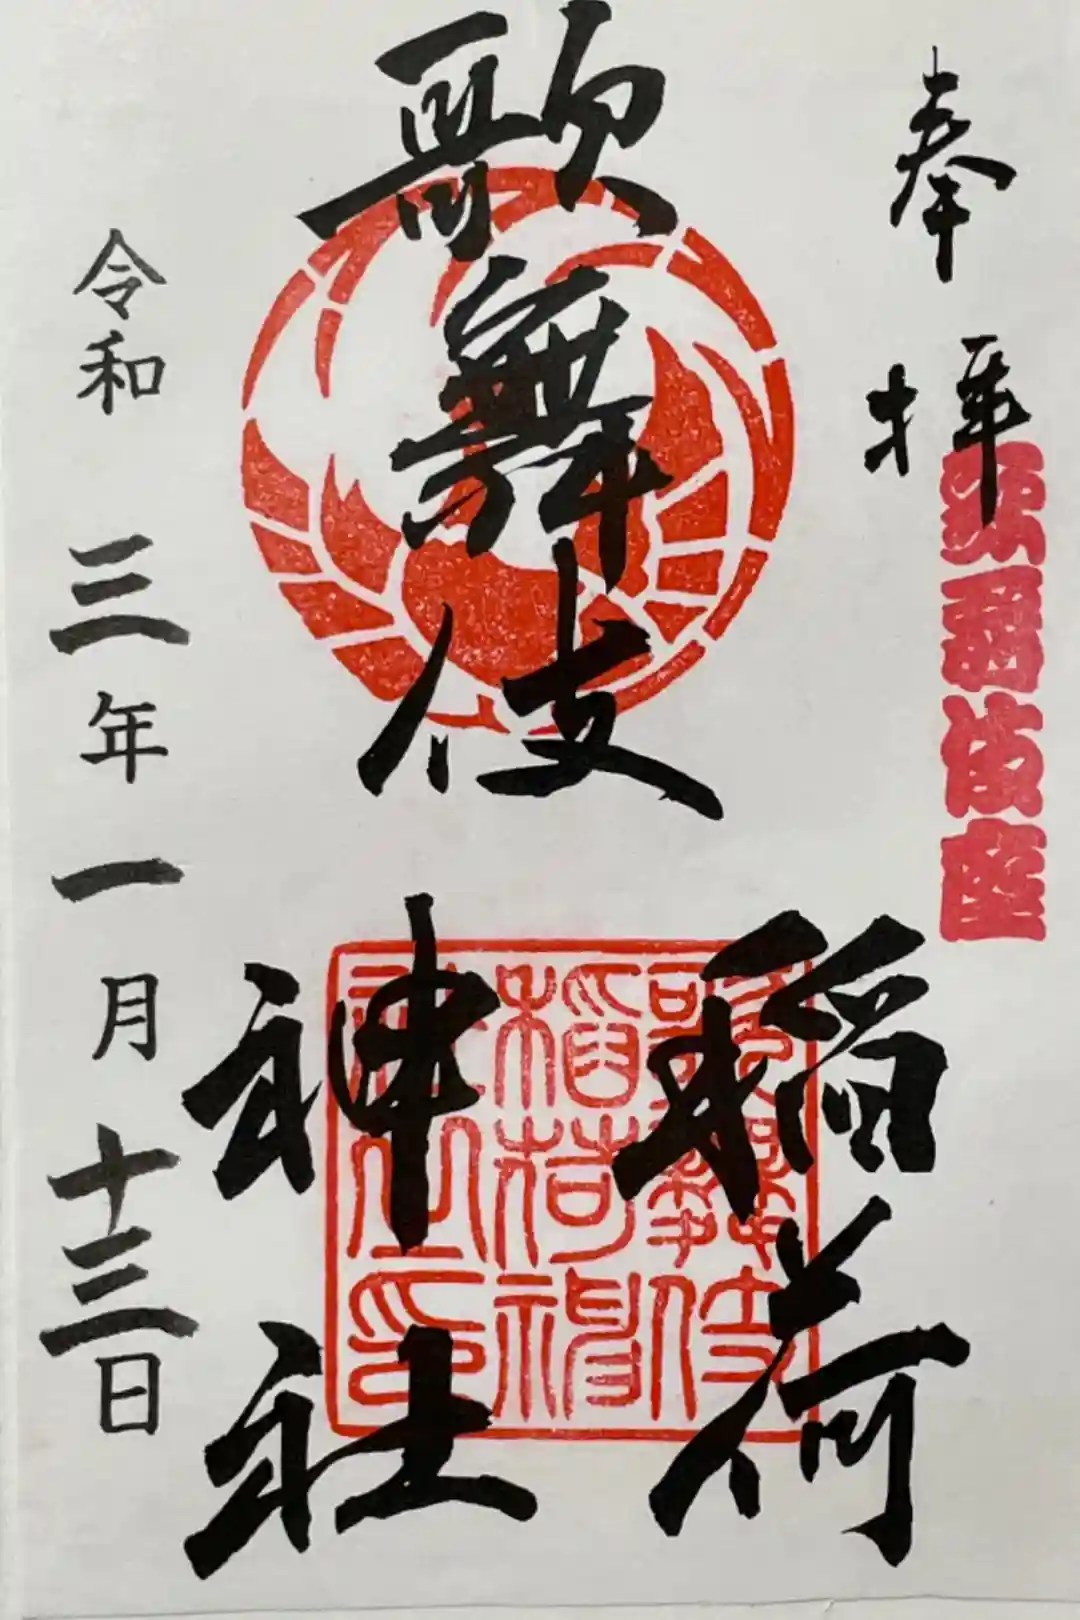 奉拝
歌舞伎座
歌舞伎
稲荷
神社
歌舞伎
稲荷神
社之印
令和三年一月十三日